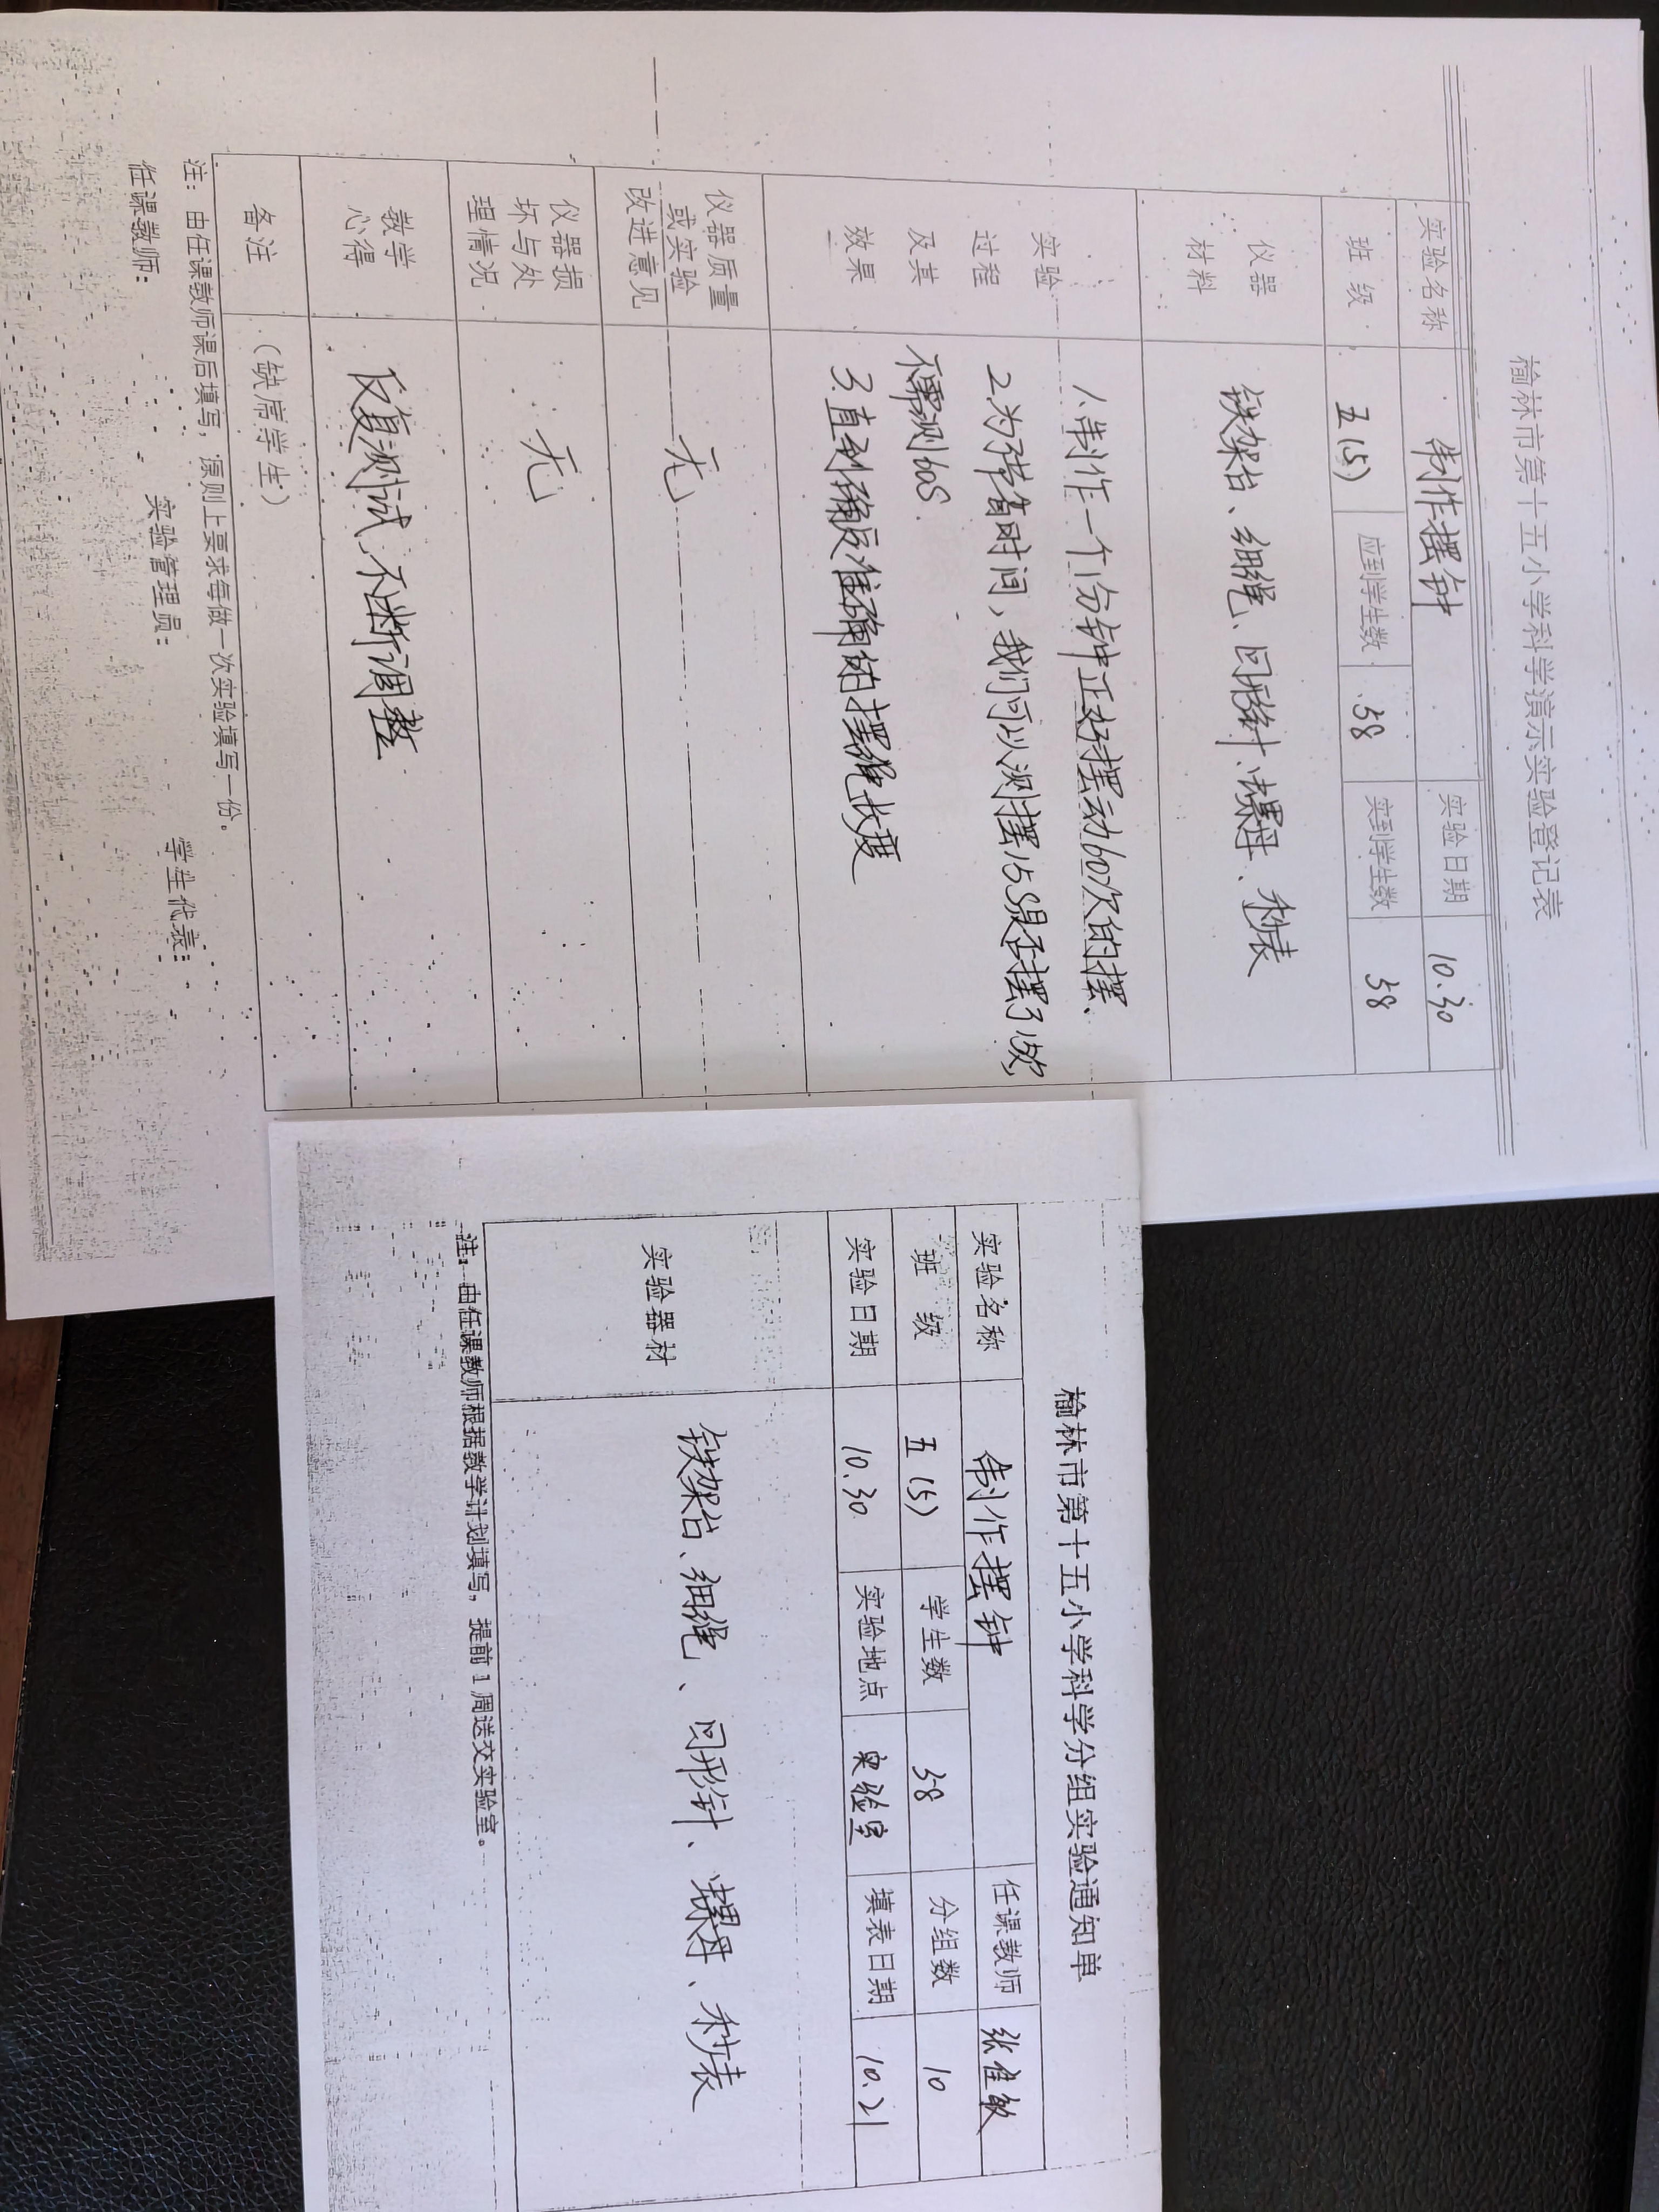 榆林市第十五小学科学演示实验登记表
实验名称 制作摆钟 实验日期 10.30
班级 五(5) 应到学生数 58 实到学生数 58
仪器材料 铁架台、细绳、回形针、螺母、秒表
实验过程及其效果
1.制作一个1分钟正好摆动60次的摆、
2.为节省时间,我们可以测摆15S是否摆了15次,
不需测60S.
3.直到确定准确的摆绳长度
仪器质量或实验改进意见 无
仪器损坏与处理情况 无
教学心得 反复测试,不断调整
备注 (缺席学生)
注: 由任课教师课后填写,原则上要求每做一次实验填写一份。
任课教师: 实验管理员: 学生代表:
榆林市第十五小学科学分组实验通知单
实验名称 制作摆钟 任课教师 张
班级 五(5) 学生数 58 分组数 10
实验日期 10.30 实验地点 实验室 填表日期 10.21
实验器材 铁架台、细绳、回形针、螺母、秒表
注: 由任课教师根据教学计划填写,提前1周送交实验室。